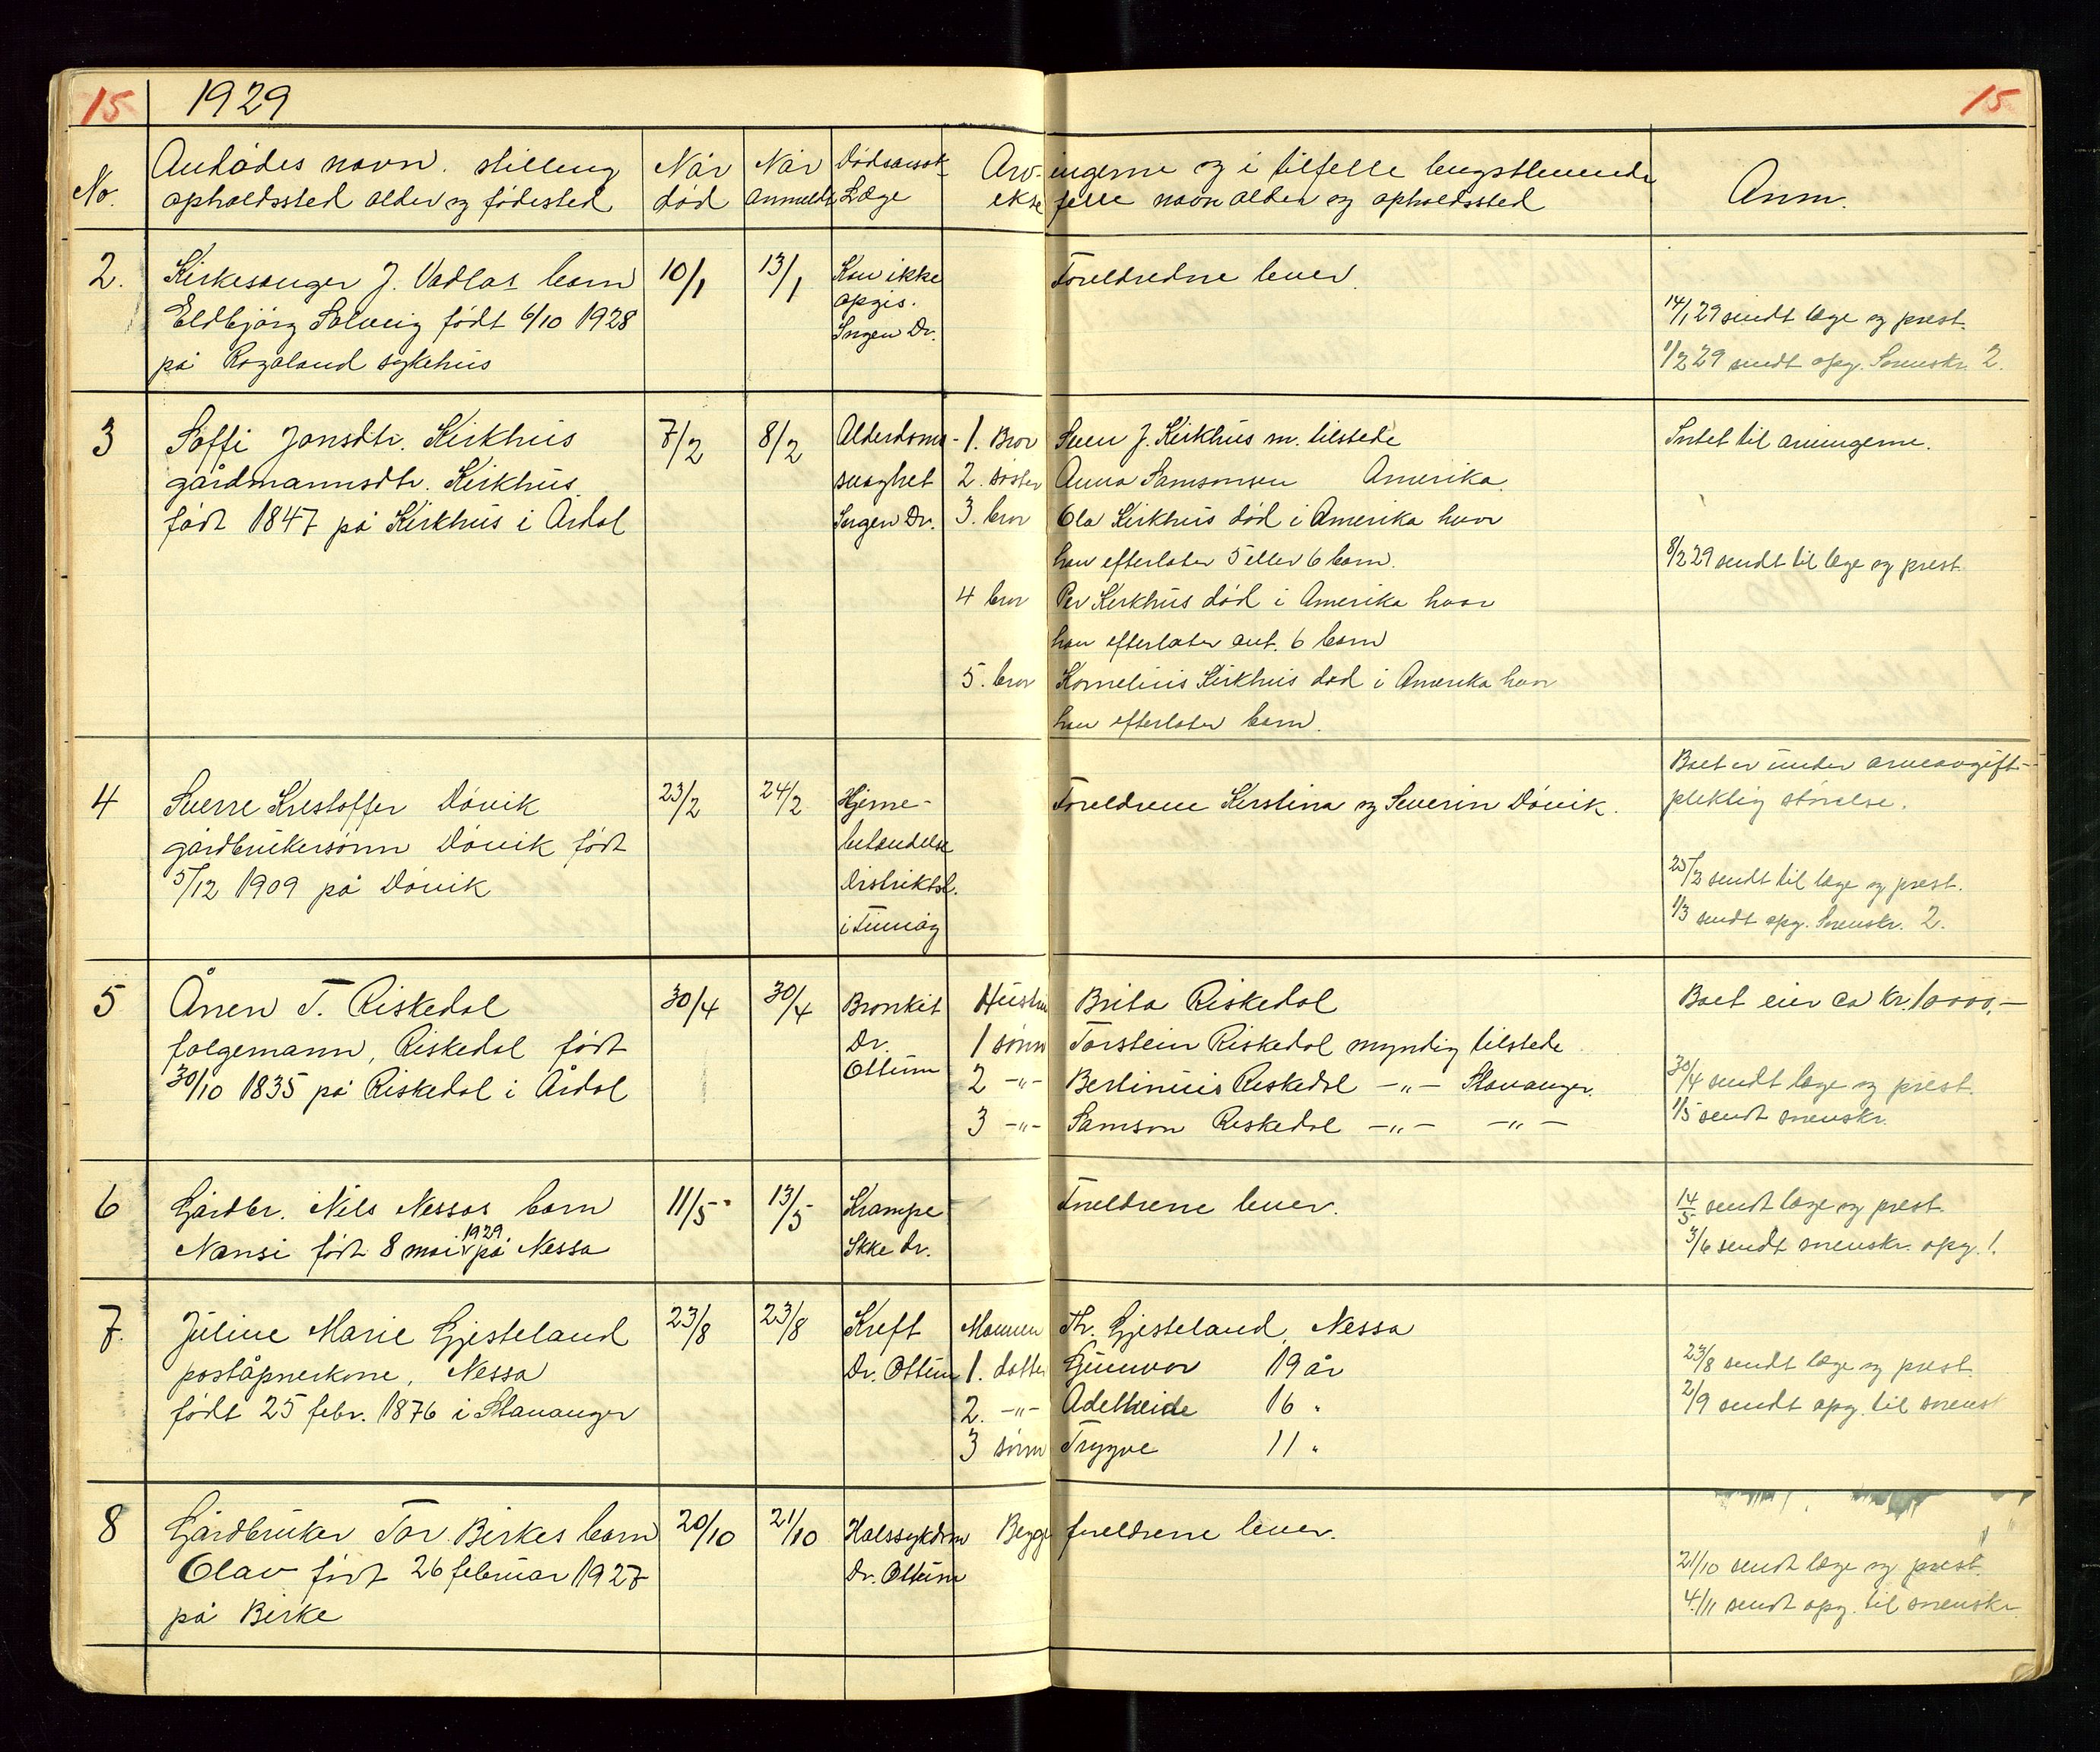 15 1929 15
No. Avdødes navn. stilling När När Dødsårsak Arv- ingerne og i tilfelle lengstlevende Anm.
opholdssted alder og fødested død anmeldt Læge ekte felle navn alder og opholdssted
2. Kirkesanger J. Vadlas barn 10/1 13/1 Kan ikke Foreldredne lever.
Eldbjørg Solveig født 6/10 1928 opgis. 14/1 29 sendt læge og prest.
på Rogaland sykehus Ingen Dr. 1/2 29 sendt opg. Sorenskr. 2.
3 Søffi Jonsdtr. Kirkhus 7/2 8/2 Alderdoms- 1. Bror Sven J. Kirkhus m. tilstede Intet til arvingerne.
gårdmannsdtr. Kirkhus svaghet 2. søster Anna Samsonsen Amerika.
født 1847 på Kirkhus i Årdal Ingen Dr. 3. bror Ola Kirkhus død i Amerika hvor
han efterlater 5 eller 6 barn. 8/2 29 sendt til læge og prest
4 bror Per Kirkhus død i Amerika hvor
han efterlater ant. 6 barn
5. bror Kornelius Kirkhus død i Amerika hvor
han efterlater barn.
Boet er under arveavgift-
4 Sverre Kristoffer Døvik 23/2 24/2 Hjerne- Foreldrene Kerstina og Severin Døvik. pliktig størelse.
gårdbrukersønn Døvik født betendelse
5/12 1909 på Døvik Distriktsl. 25/2 sendt til læge og prest.
i Finnøy 1/3 sendt opg. Sorenskr. 2.
5 Ånen T. Riskedal 30/4 30/4 Bronkit Hustru Brita Riskedal Boet eier ca kr. 10000,—
folgemann, Riskedal født Dr. 1 sønn Torstein Riskedal myndig tilstede
30/10 1835 på Riskedal i Årdal Ottum 2 -„- Bertinius Riskedal -„- Stavanger. 30/4 sendt læge og prest.
3 -„- Samson Riskedal -„- -„- 1/5 sendt sorenskr.
6 Gårdbr. Nils Nessas barn 11/5 13/5 Krampe Foreldrene lever. 14/5 sendt læge og prest.
Nansi født 8 mai 1929 på Nessa Ikke dr. 3/6 sendt sorenskr. opg. 1.
7. Juline Marie Gjesteland 23/8 23/8 Kreft Mannen Th. Gjesteland, Nessa
poståpnerkone, Nessa Dr. Ottum 1. datter Gunnvor 19 år 23/8 sendt læge og prest.
født 25 febr. 1876 i Stavanger 2. -„- Adelheide 16 „ 2/9 sendt opg. til sorensk
3 sønn Trygve 11 „
8 Gårdbruker Tor Birkes barn 20/10 21/10 Halssykdom Begge foreldrene lever.
Olav født 26 februar 1927 Dr. Ottum 21/10 sendt læge og prest.
på Birke 4/11 sendt opg. til sorenskr.